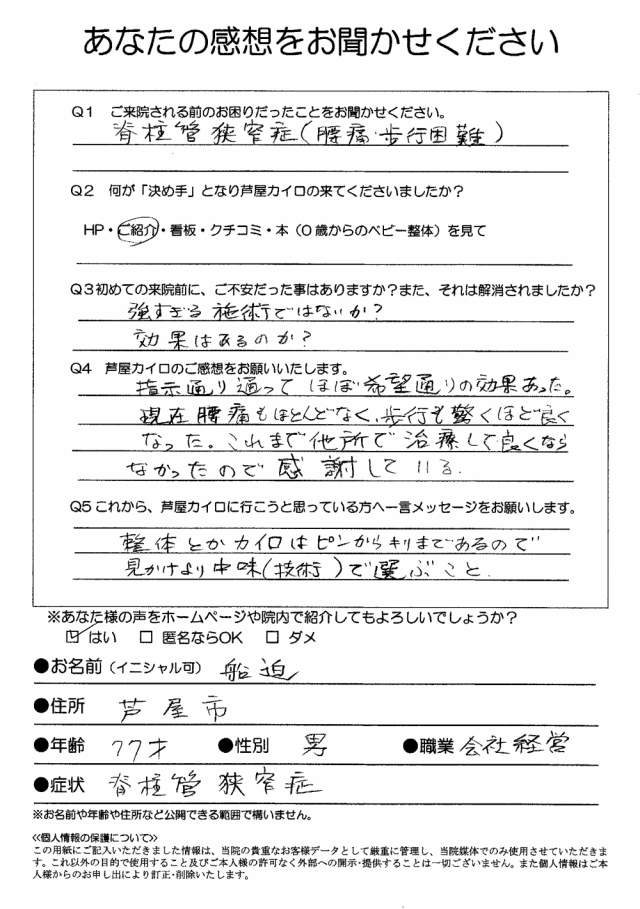 あなたの感想をお聞かせください
Q1 ご来院される前のお困りだったことをお聞かせください。
脊柱管狭窄症(腰痛・歩行困難)
Q2 何が「決め手」となり芦屋カイロの来てくださいましたか?
HP・ご紹介・看板・クチコミ・本(0歳からのベビー整体)を見て
Q3初めての来院前に、ご不安だった事はありますか?また、それは解消されましたか?
強すぎる施術ではないか?
効果はあるのか?
Q4 芦屋カイロのご感想をお願いいたします。
指示通り通って ほぼ希望通りの効果あった。
現在腰痛もほとんどなく、歩行も驚くほど良く
なった。これまで他所で治療して良くなら
なかったので感謝している.
Q5これから、芦屋カイロに行こうと思っている方へ一言メッセージをお願いします。
整体とかカイロはピンからキリまであるので
見かけより中味(技術)で選ぶこと.
※あなた様の声をホームページや院内で紹介してもよろしいでしょうか?
☑ はい □ 匿名ならOK □ ダメ
●お名前(イニシャル可) 船迫
●住所 芦屋市
●年齢 77才 ●性別 男 ●職業 会社経営
●症状 脊柱管狭窄症
※お名前や年齢や住所など公開できる範囲で構いません。
≪個人情報の保護について≫
この用紙にご記入いただきました情報は、当院の貴重なお客様データとして厳重に管理し、当院媒体でのみ使用させていただきま
す。これ以外の目的で使用すること及びご本人様の許可なく外部への開示・提供することは一切ございません。また個人情報はご本
人様からのお申し出により訂正・削除いたします。